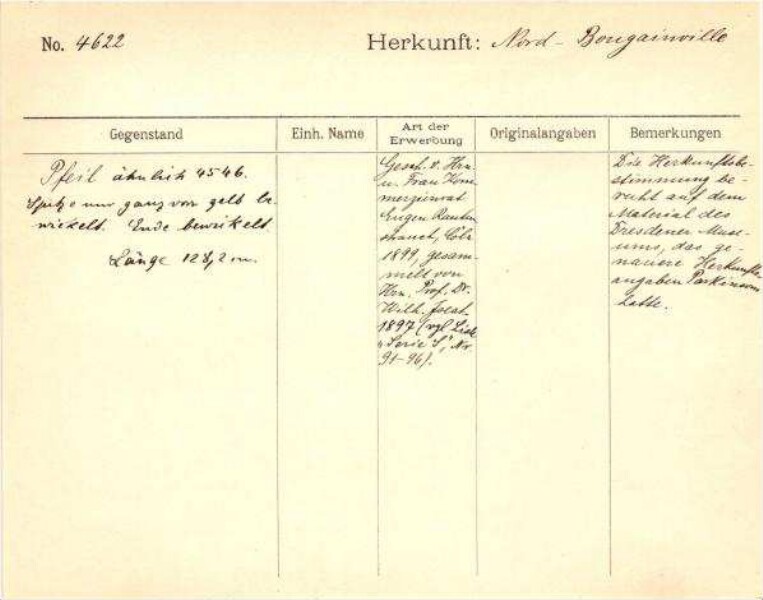 No. 4622
Herkunft: Nord - Bougainville
Gegenstand
Einh. Name
Art der Erwerbung
Originalangaben
Bemerkungen
Pfeil ähnlich 4546.
Spitze nur ganz vorn gelb be-
wickelt. Ende bewickelt.
Länge 128,2 cm.
Gesch. v. Hrn.
u. Frau Kom-
merzienrat
Eugen Rauten-
strauch, Cöln
1899, gesam-
melt von
Hrn. Prof. Dr.
Wilh. Joest.
1897 (vgl. Liste
"Serie S", Nr.
91-96).
Die Herkunftsbe-
stimmung be-
ruht auf dem
Material des
Dresdener Muse-
ums, das ge-
nauere Herkunfts-
angaben Parkinsons
hatte.